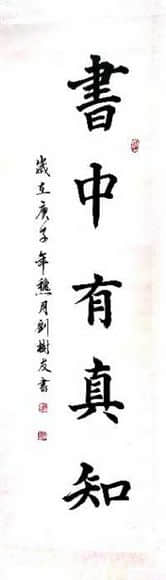 書中有真知
歲在庚子年穐月劉樹友書